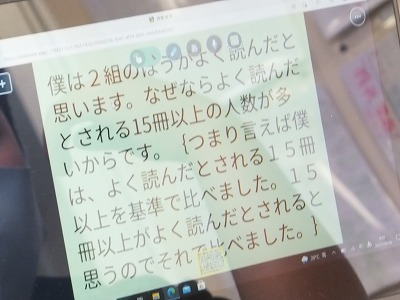 僕は２組のほうがよく読んだと
思います。なぜならよく読んだ
とされる15冊以上の人数が多
いからです。｛つまり言えば僕
は、よく読んだとされる１５冊
以上を基準で比べました。１５
冊以上がよく読んだとされると
思うのでそれで比べました。｝